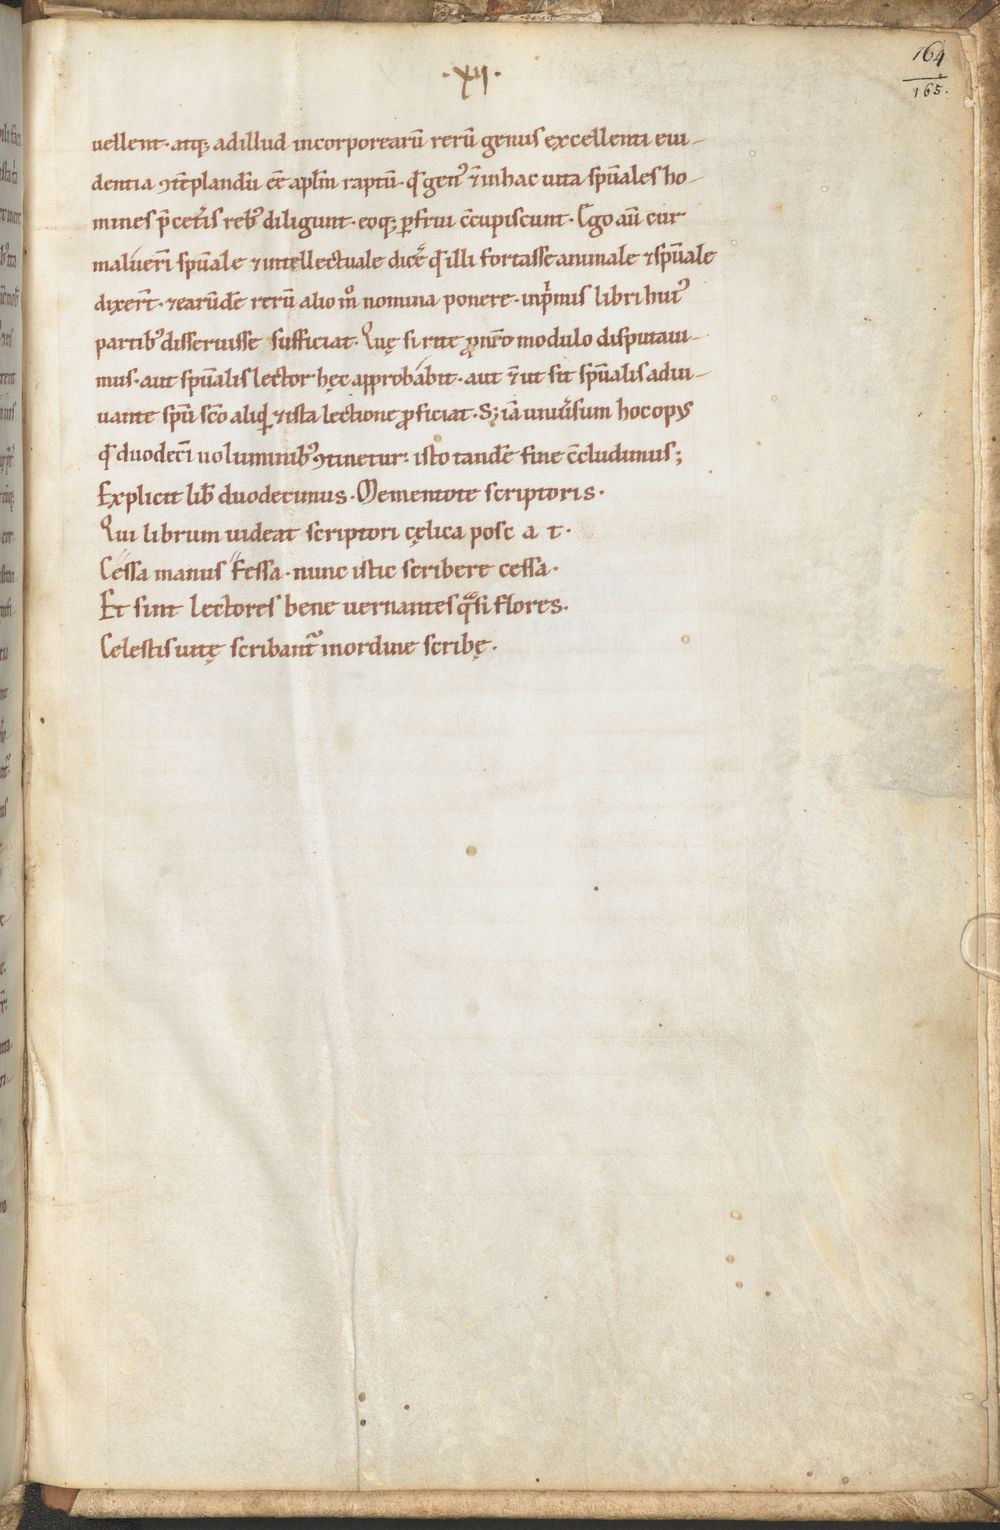 ·XII·
164
165.
uellent· atq; ad illud incorporearū rerū genus excellenti eui-
dentia ꝯtēplandū eē apl̄m raptū· qđ gen᷒ ē in hac uita sp̄uales ho-
mines p̄ cet̄is reb᷒ diligunt· eoq; ꝑfrui c̄cupiscunt· Ego aū cur
maluerī sp̄uale ⁊ intellectuale dicē qđ illi fortasse animale ⁊ sp̄uale
dixer̄t· ⁊ earūdē rerū alio mͦ nomina ponere· inp̄mis libri hui᷒
partib᷒ disseruisse sufficiat· Quę si rite ꝓ nr̄o modulo disputaui-
mus· aut sp̄ualis lector hęc approbabit· aut ē ut sit sp̄ualis adiu-
uante sp̄u sc̄o aliqđ ⁊ ista lectione ꝓficiat· S; iā uniu̓sum hoc opus
qđ duodecī uoluminib᷒ ꝯtinetur· isto tandē fine c̄cludimus;
Explicit lib̄ duodecimus· Mementote scriptoris·
Qui librum uideat scriptori cęlica posc a t·
Cessa manus fessa· nunc istic scribere cessa·
Et sint lectores bene uernantes qͣsi flores·
Celestis uitę scribant᷑ in ordine scribę·